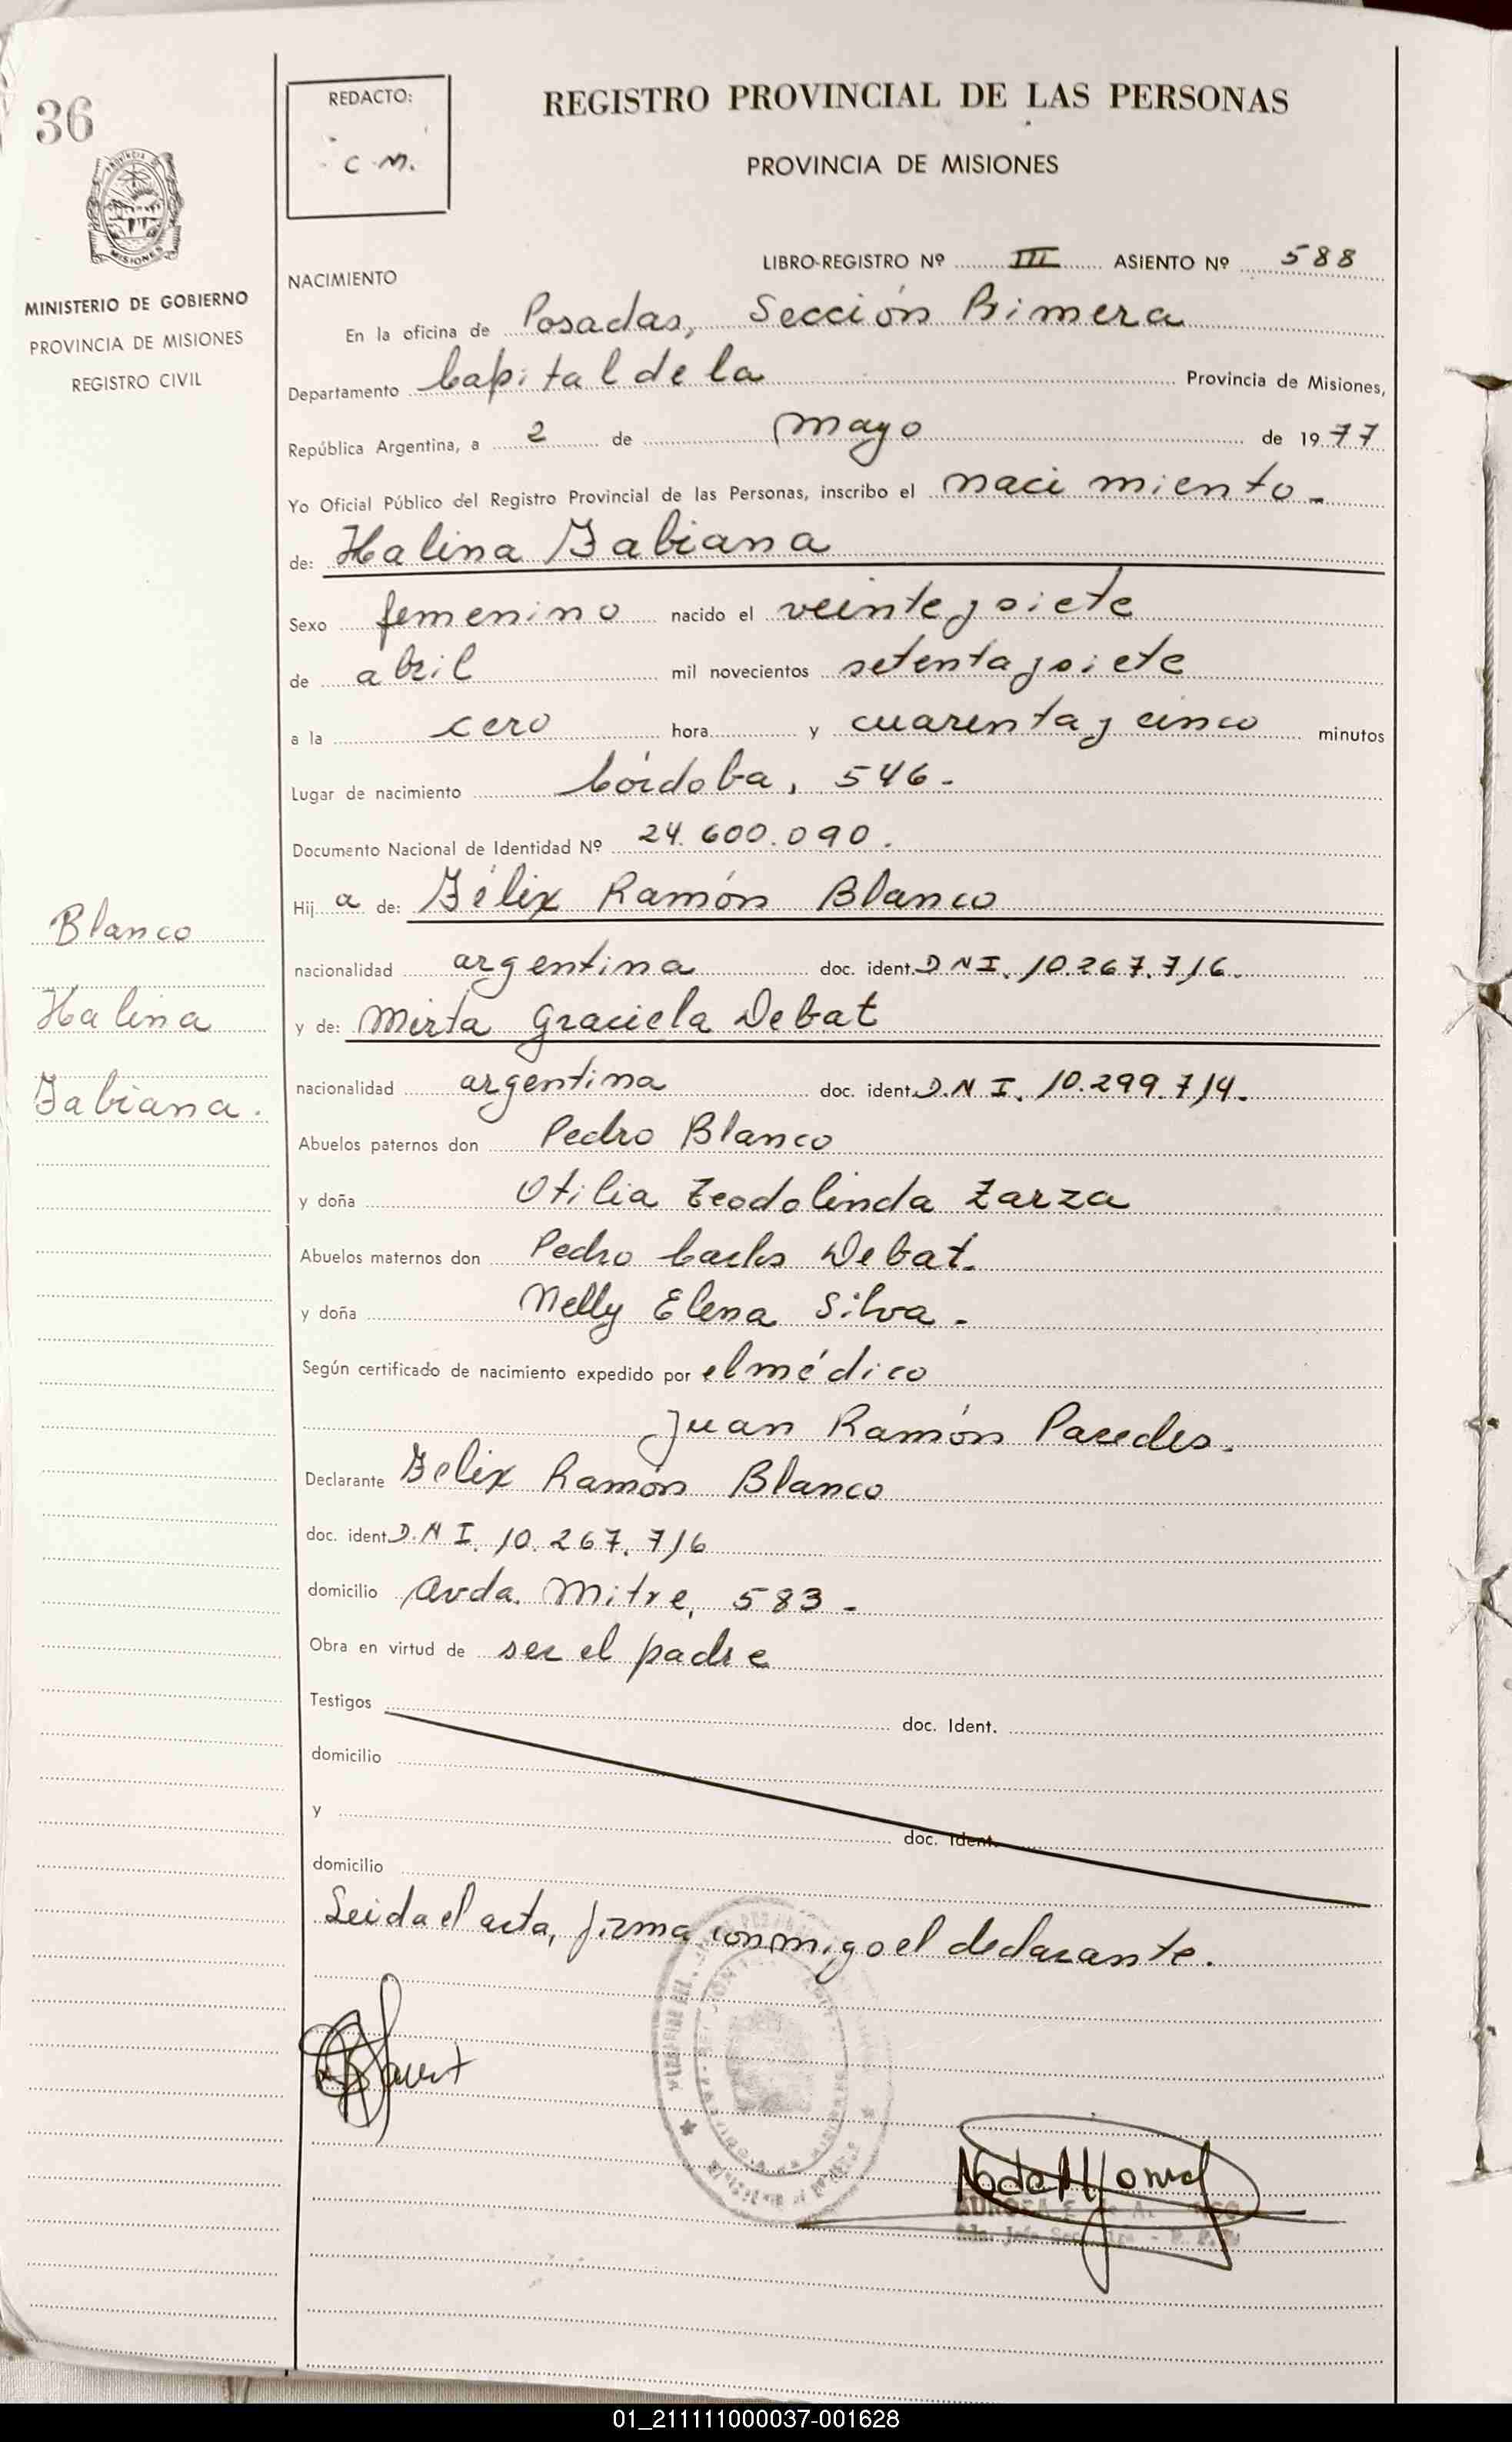 36
REDACTO:
C.M.
REGISTRO PROVINCIAL DE LAS PERSONAS
PROVINCIA DE MISIONES
MISIONES
MINISTERIO DE GOBIERNO
PROVINCIA DE MISIONES
REGISTRO CIVIL
LIBRO-REGISTRO Nº III ASIENTO Nº 588
NACIMIENTO
En la oficina de Posadas, Sección Primera
Departamento Capital de la Provincia de Misiones,
República Argentina, a 2 de mayo de 1977
Yo Oficial Público del Registro Provincial de las Personas, inscribo el nacimiento-
de: Halina Fabiana
Sexo femenino nacido el veinte y siete
de abril mil novecientos setenta y siete
a la cero hora y cuarenta y cinco minutos
Lugar de nacimiento Córdoba, 546-
Documento Nacional de Identidad Nº 24.600.090.
Hij a de: Félix Ramón Blanco
nacionalidad argentina doc. ident. D N I. 10.267.716-
y de: Mirta Graciela Debat
nacionalidad argentina doc. ident. D.N I. 10.299.714-
Abuelos paternos don Pedro Blanco
y doña Otilia Teodolinda Zarza
Abuelos maternos don Pedro Carlos Debat-
y doña Nelly Elena Silva-
Según certificado de nacimiento expedido por el médico
Juan Ramón Paredes.
Declarante Felix Ramón Blanco
doc. ident. D.N I. 10.267.716
domicilio Avda. Mitre, 583-
Obra en virtud de ser el padre
Testigos doc. Ident.
domicilio
y doc. Ident.
domicilio
Leida el acta, firma conmigo el declarante.
Blanco
Halina
Fabiana.
01_211111000037-001628